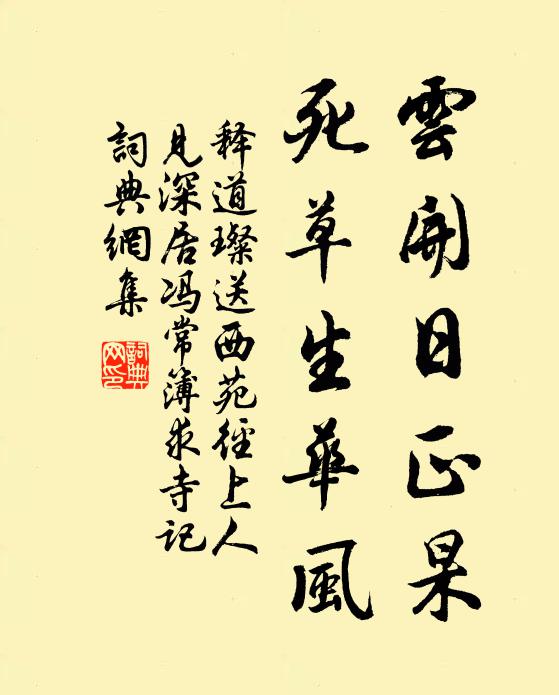 雲開日正杲
死草生華風
释道璨送西苑徑上人
見深居冯常簿求寺記
詞典網集
詞典網印